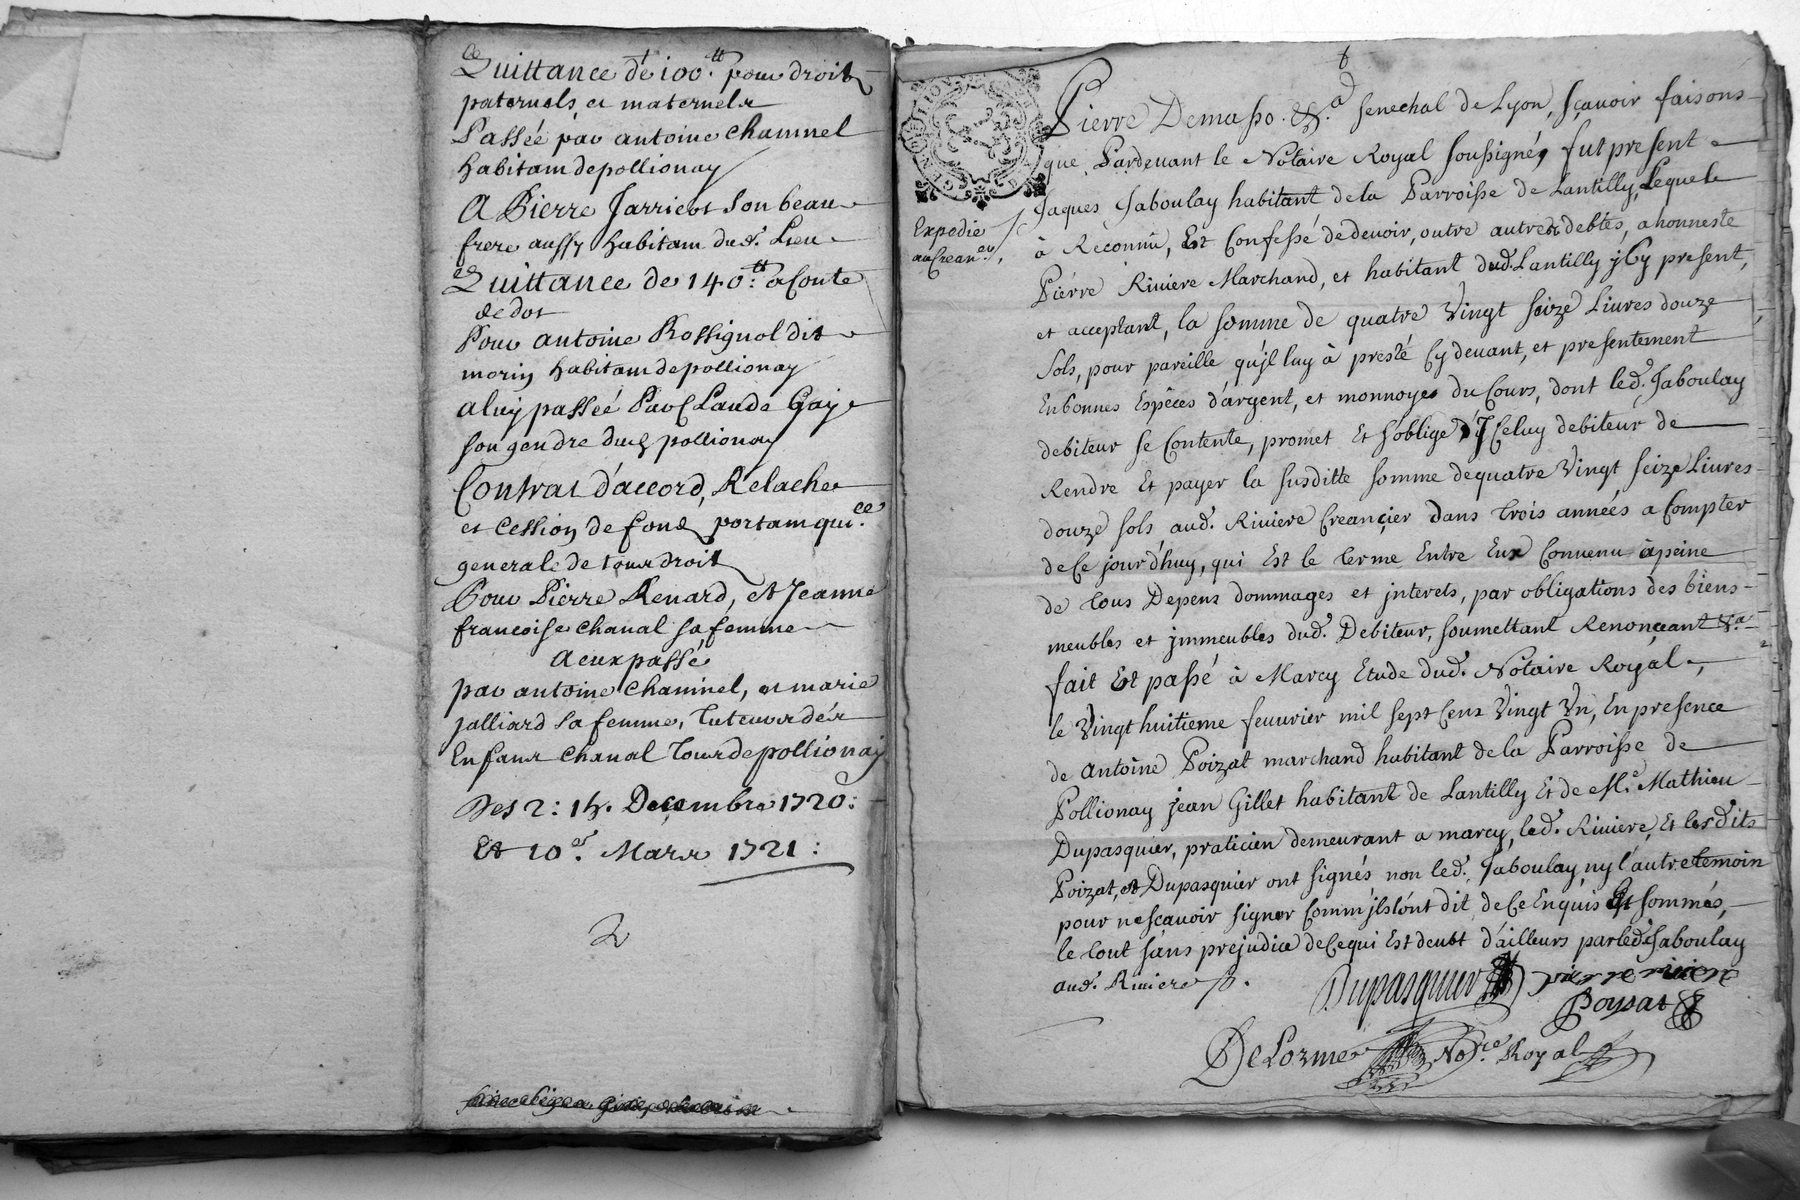 Quittance de 100.tt pour droits
paternels et maternels
Passée par antoine chamnel
habitant de pollionay
A Pierre Jarricot son beau
frere aussy habitant dud. Lieu
Quittance de 140.tt a Conte
de dot
Pour antoine Rossignol dit
morin habitant de pollionay
a luy passéé Par Claude Gay
son gendre dud pollionay
Contrat d'accord, Relaches
et Cession de fond portant qui.ce
generale de tous droits
Pour Pierre Renard, et Jeanne
francoise chanal sa femme
a eux passé
par antoine chaninel, et marie
jalliard sa femme, tuteurs dés
Enfans chanal tous de pollionay
Des 2: 14. Decembre 1720:
Et 10.e Mars 1721:
2
Pierre Demaso. &.a senechal de Lyon, sçavoir faisons
que Pardevant le Notaire Royal soussigné, fut present
Jaques Jaboulay habitant de la Parroisse de Lantilly, Lequel
à Reconnû, Et Confessé de devoir, outre autres debtes, a honneste
Piérre Riviere Marchand, et habitant dud. Lantilly jCy present,
et acceptant, la somme de quatre Vingt seize Livres douze
sols, pour pareille qu'jl luy à presté Cydevant, et presentement
En bonnes Espêces d'argent, et monnoyes du Cours, dont led. Jaboulay
debiteur se Contente, promet Et s'oblige d'JCeluy debiteur de
Rendre Et payer la susditte somme de quatre Vingt seize Livres
douze sols, aud. Riviere Creançier dans trois annéés a Compter
de Ce jourd'huy, qui Est le terme Entre Eux Convenu à peine
de tous Depens dommages et jnterets, par obligations des biens
meubles et jmmeubles dud. Debiteur, soumettant Renonçeant &.a
fait Et passé à Marcy Etude dud. Notaire Royal,
le Vingt huitieme feuvrier mil sept Cens Vingt Vn, En presence
de Antoine Poizat marchand habitant de la Parroisse de
Pollionay jean Gillet habitant de Lantilly Et de M.e Mathieu
Dupasquier, praticien demeurant a marcy, led. Riviere, Et lesdits
Poizat, et Dupasquier ont signés non led. Jaboulay ny l'autre temoin
pour ne scavoir signer Comm'jls l'ont dit de Ce Enquis Et sommés,
le tout sans prejudice de Ce qui Est deubt d'ailleurs par led. Jaboulay
aud. Riviere
Expedie
au Crean.er
Dupasquier pierre riviere
Poysat
DeLorme No.re Royal